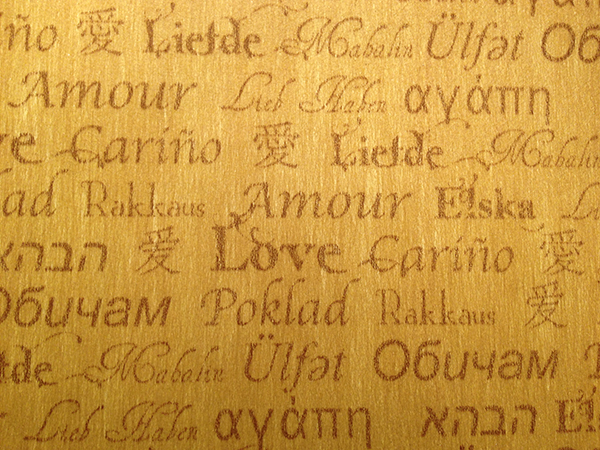 iño 愛 Liefde Mabalin Ülfət Об
Amour Lieb Haben αγάπη
ve Cariño 愛 Liefde Mabalin
ad Rakkaus Amour Elska Li
הבהא 愛 Love Cariño 愛
Обичам Poklad Rakkaus 愛
de Mabalin Ülfət Обичам
Lieb Haben αγάπη הבהא El